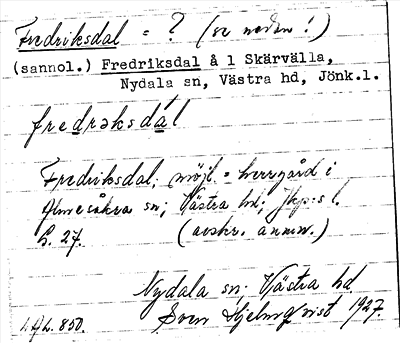 Fredriksdal = ? (se nedan!)
(sannol.) Fredriksdal å 1 Skärvälla,
Nydala sn, Västra hd, Jönk.l.
fredrəksdál
Fredriksdal, möjl. = herrgård i
Almesåkra sn; Västra hd; Jkp:s l.
S. 27. (avskr. anmn.)
Nydala sn; Västra hd
Sven Hjelmqvist 1927.
L.A.L. 850.